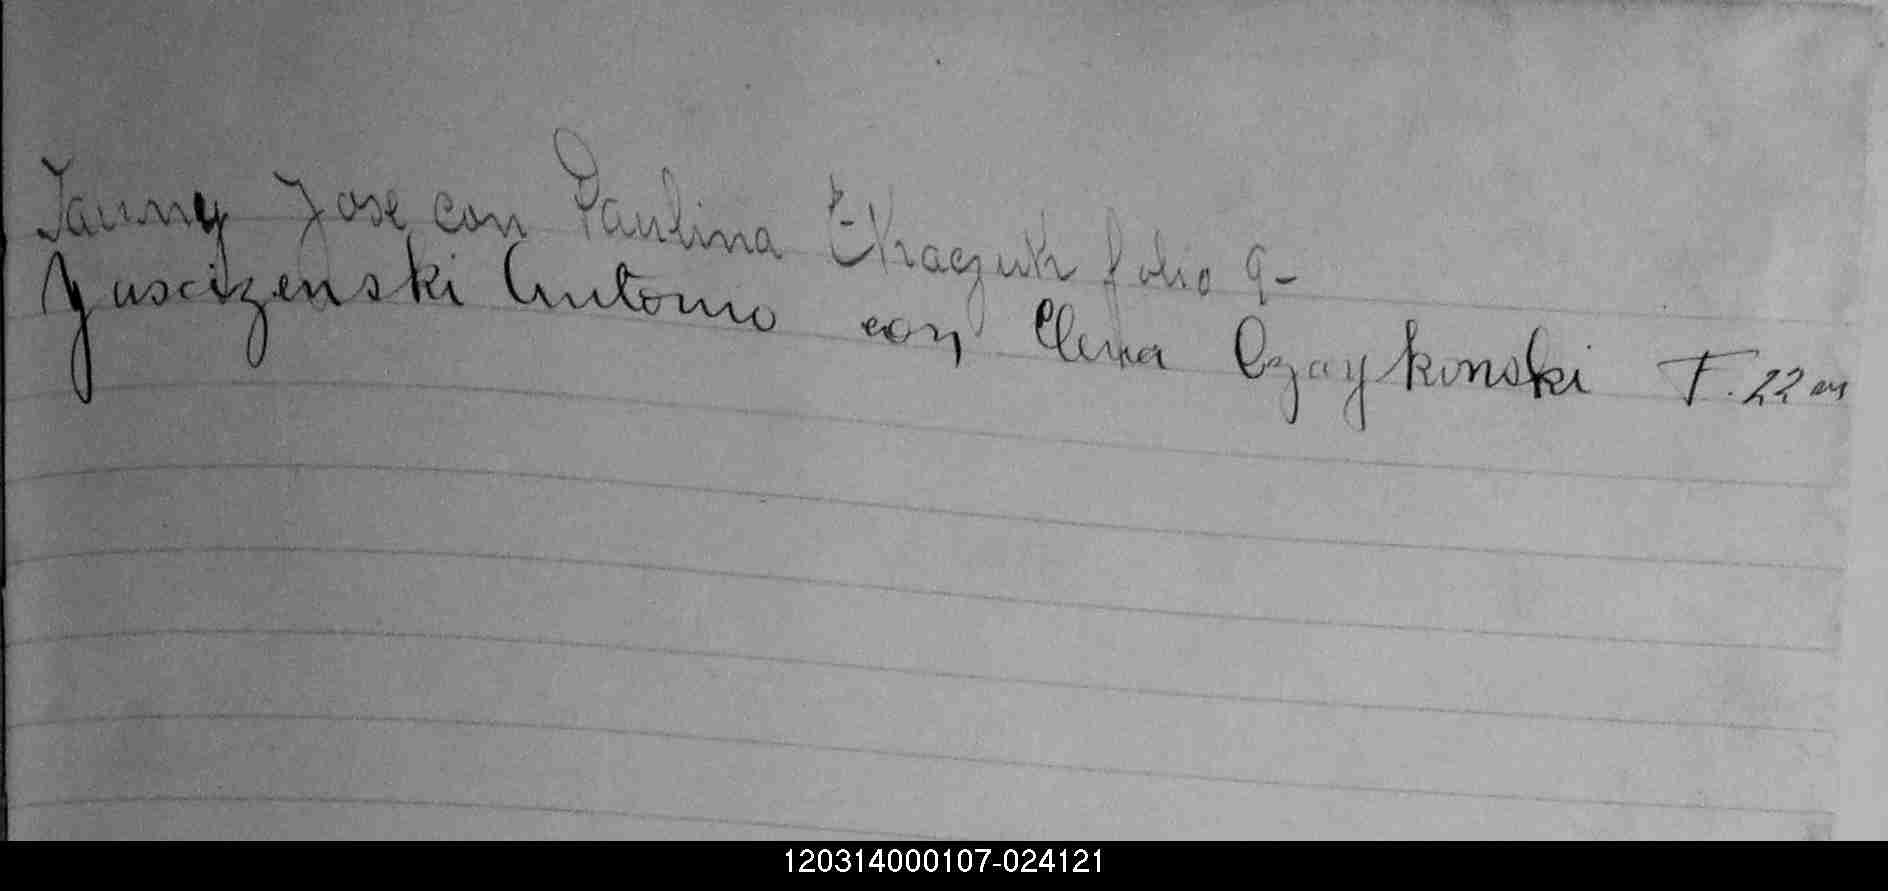 Jauny Jose con Paulina Tkaczuk folio 9-
Juscizenski Antonio con Elena Czaykonski F. 22
120314000107-024121